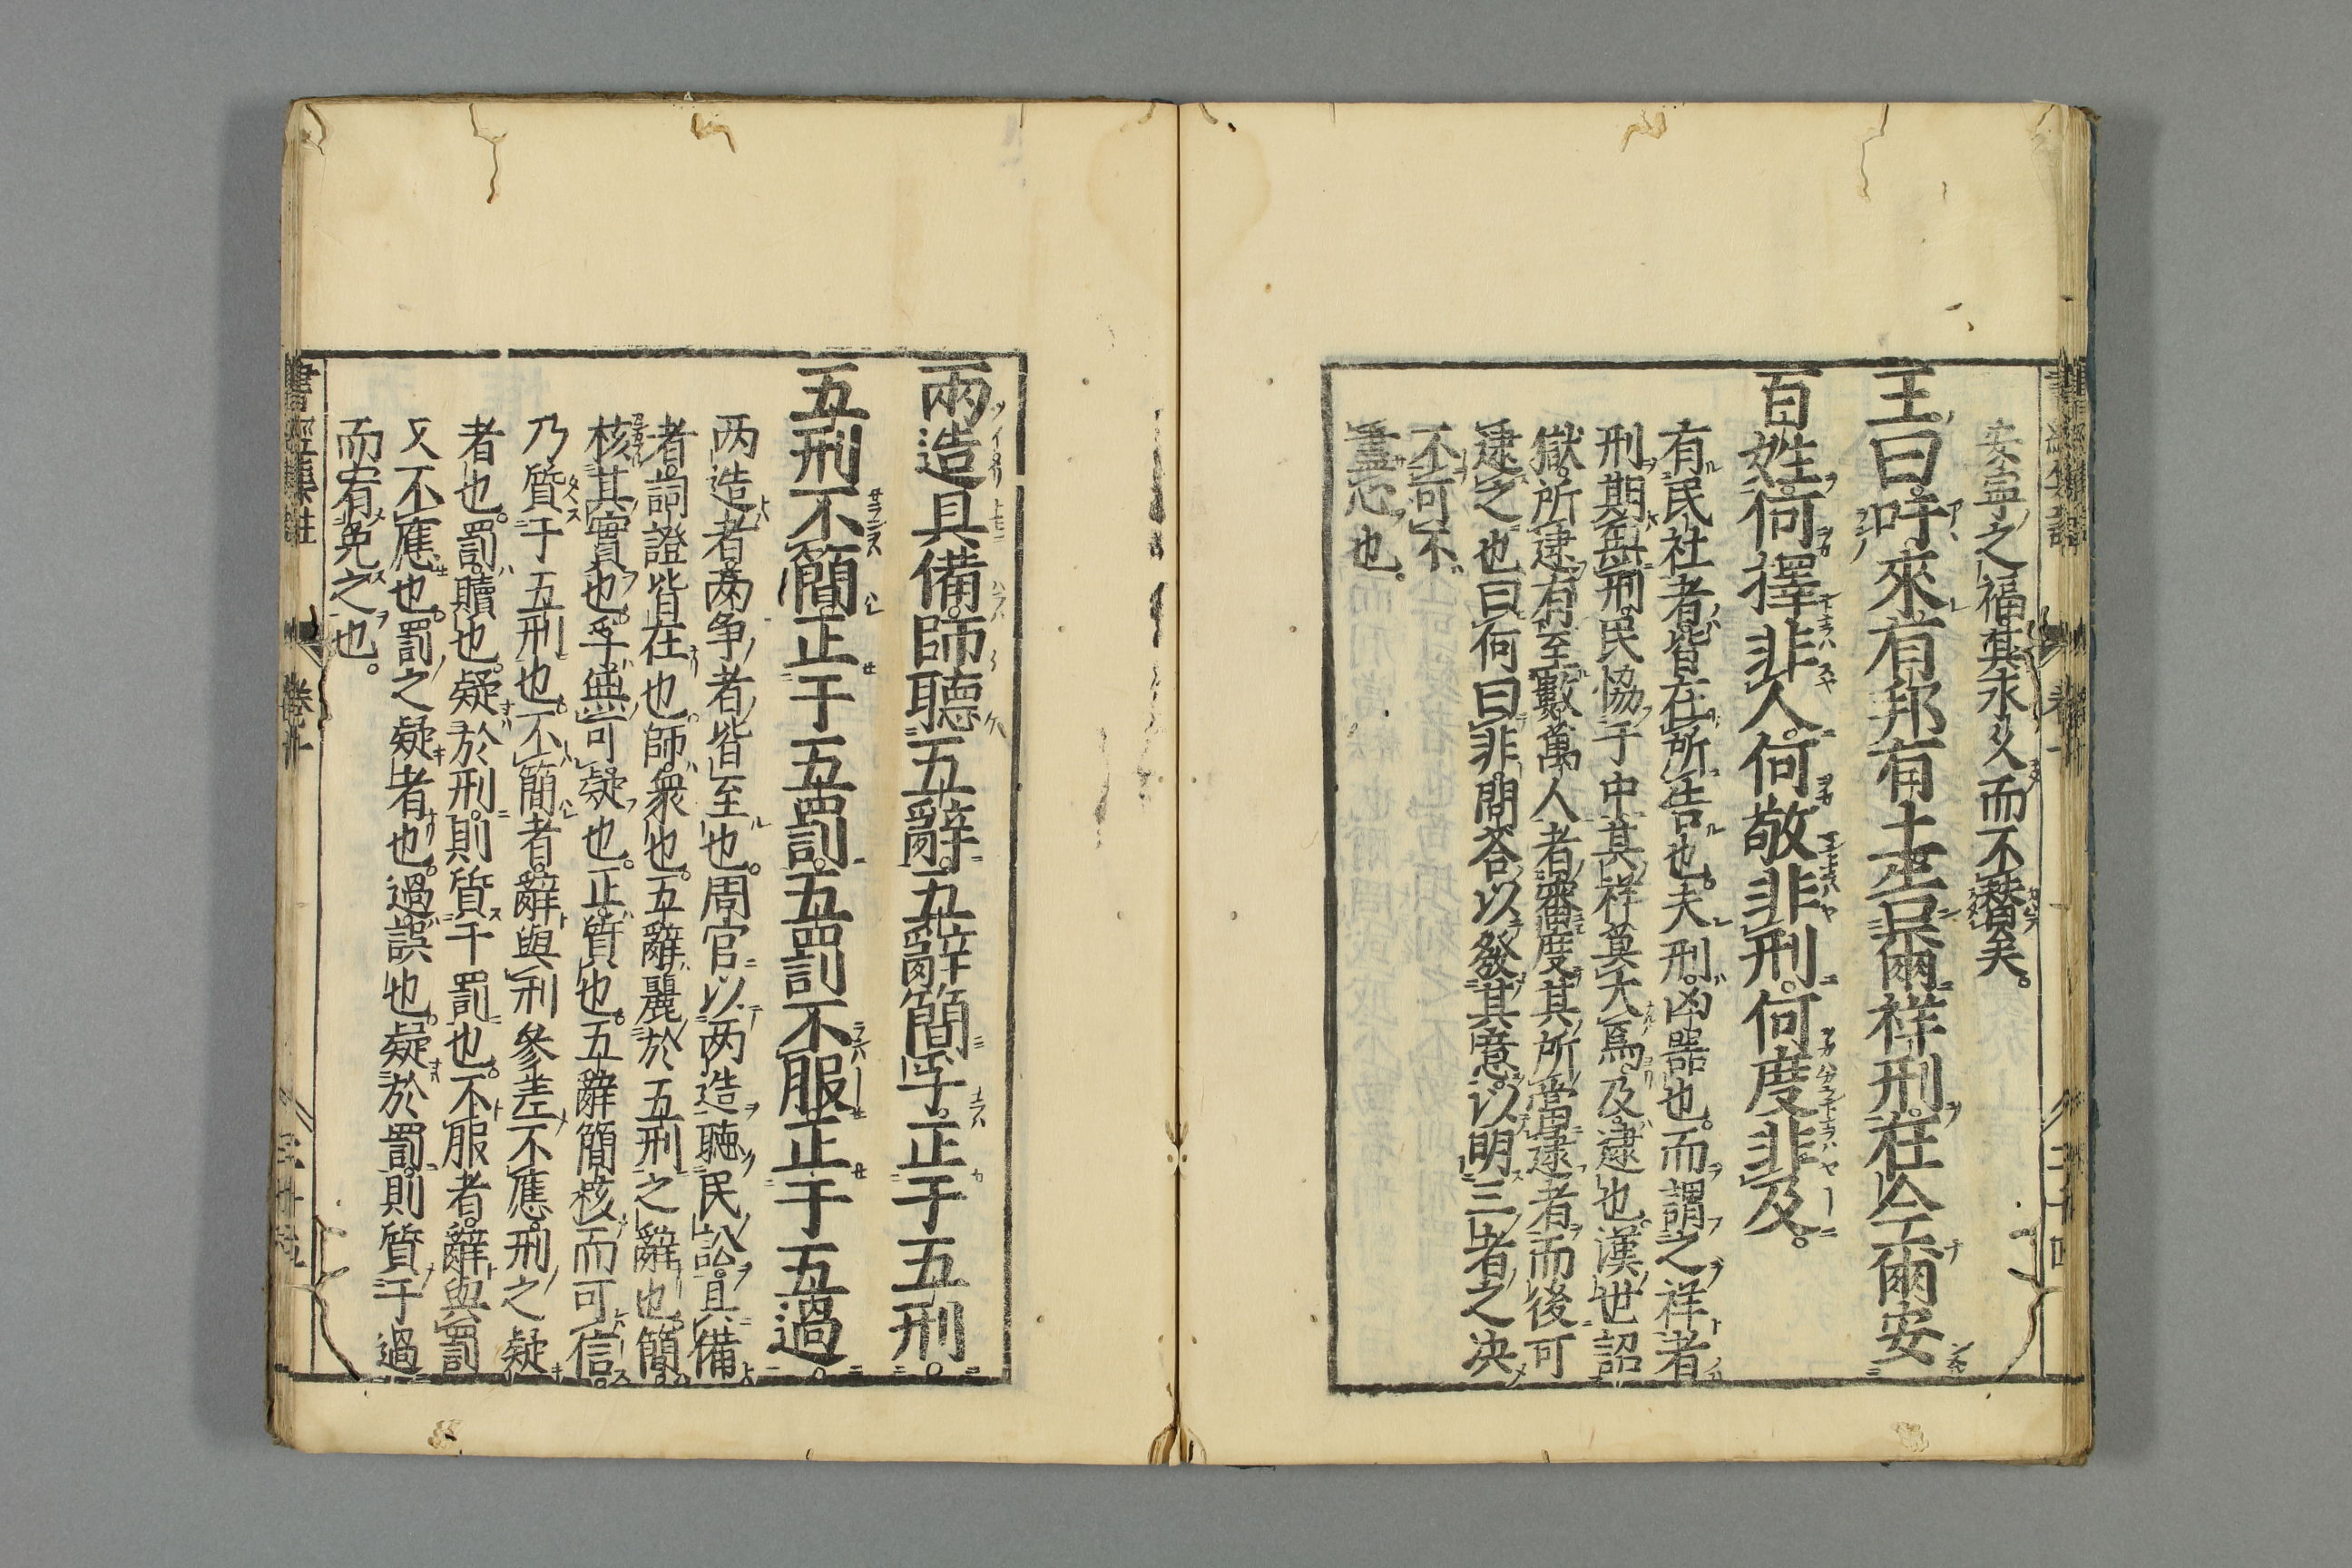 安寧之福其永久而不替矣。
王曰。吁。來有邦有土。告爾祥刑。在今爾安
百姓。何擇非人。何敬非刑。何度非及。
有民社者。皆在所告也。夫刑。凶器也。而謂之祥者
刑期無刑。民協于中。其祥莫大焉。及。逮也。漢世詔
獄。所逮有至數萬人者。審度其所當逮者。而後可
逮之也。曰何曰非。問答以發其意。以明三者之决
不可不
盡心也。
兩造具備。師聽五辭。五辭簡孚。正于五刑。
五刑不簡。正于五罰。五罰不服。正于五過。
两造者。兩争者皆至也。周官以两造聽民訟。具備
者。詞證皆在也。師。衆也。五辭。麗於五刑之辭也。簡
核其實也。孚。無可疑也。正。質也。五辭簡核而可信。
乃質于五刑也。不簡者。辭與刑參差不應。刑之疑
者也。罰。贖也。疑於刑。則質于罰也。不服者。辭與罰
又不應也。罰之疑者也。過。誤也。疑於罰。則質于過
而宥免之也。
書經集註 卷十